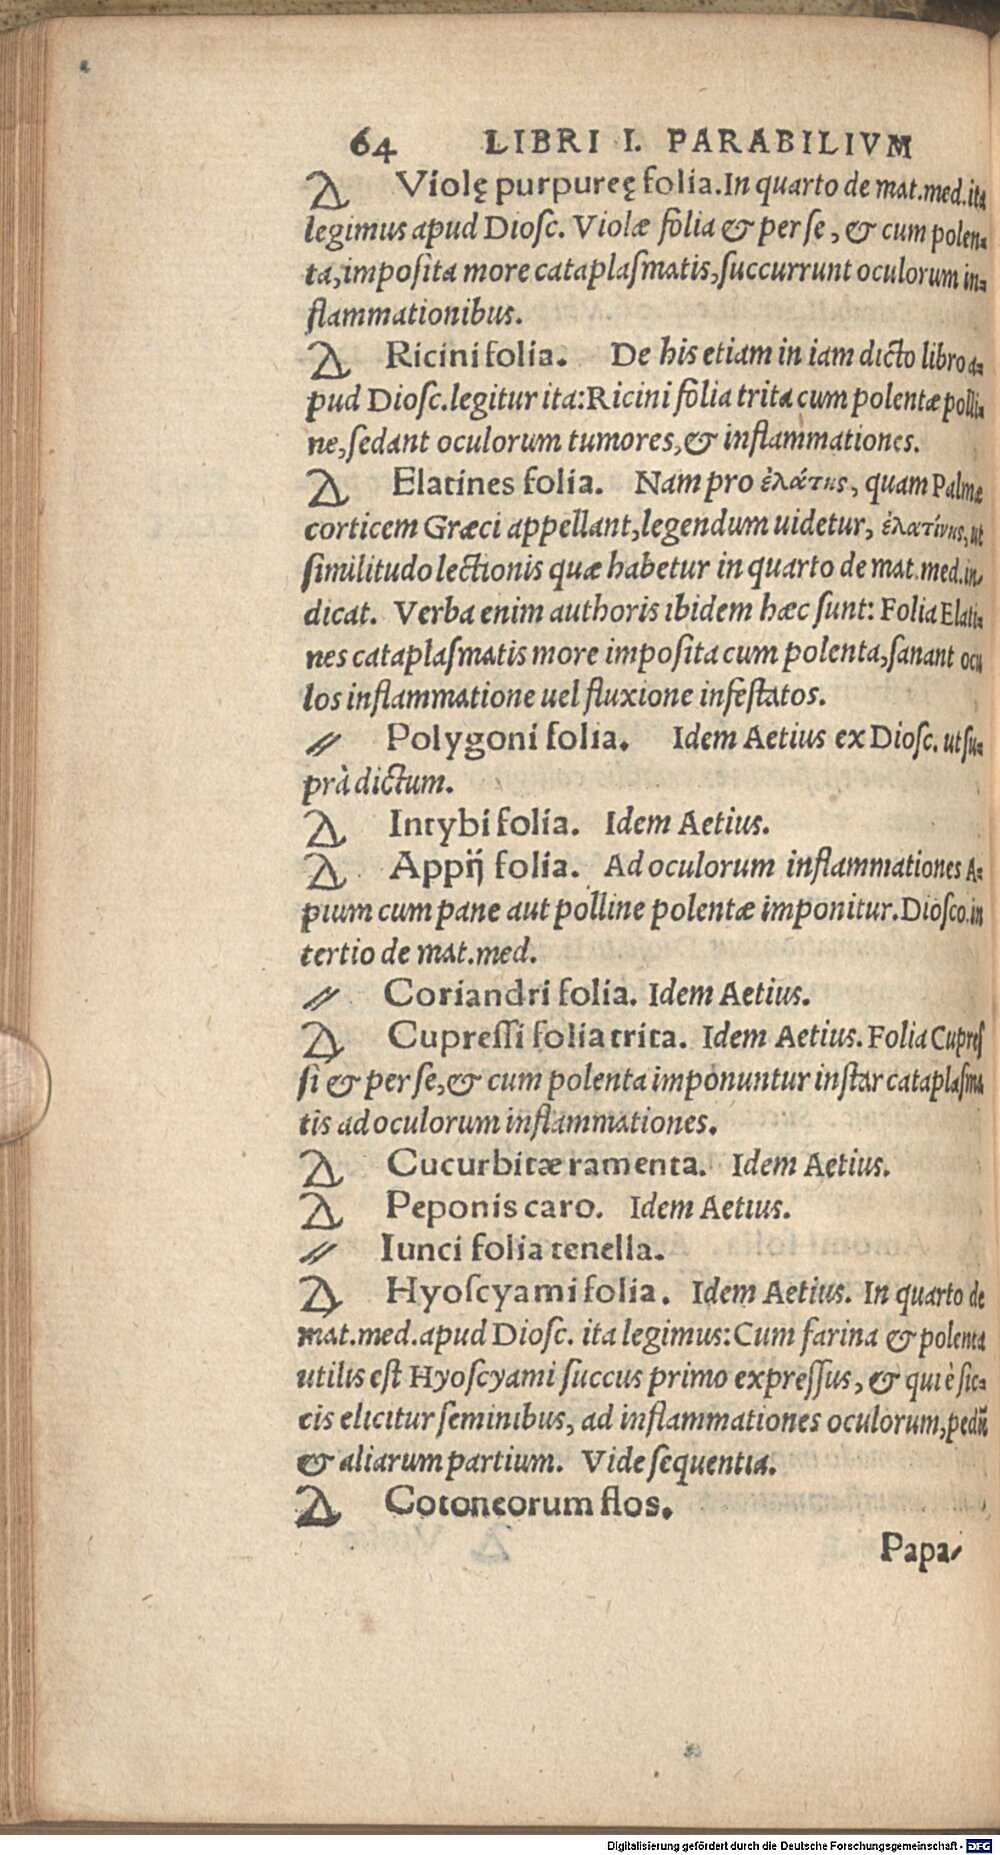 64 LIBRI I. PARABILIVM
Δ Violę purpureę folia. In quarto de mat.med.ita
legimus apud Diosc. Violæ folia & per se, & cum polen-
ta, imposita more cataplasmatis, succurrunt oculorum in-
flammationibus.
Δ Ricini folia. De his etiam in iam dicto libro a-
pud Diosc. legitur ita: Ricini folia trita cum polentæ polli-
ne, sedant oculorum tumores, & inflammationes.
Δ Elatines folia. Nam pro ἐλάτης, quam Palmæ
corticem Græci appellant, legendum uidetur, ἐλατίνης, ut
similitudo lectionis quæ habetur in quarto de mat.med.in-
dicat. Verba enim authoris ibidem hæc sunt: Folia Elati-
nes cataplasmatis more imposita cum polenta, sanant ocu
los inflammatione uel fluxione infestatos.
// Polygoni folia. Idem Aetius ex Diosc. ut su-
prà dictum.
Δ Intybi folia. Idem Aetius.
Δ Appij folia. Ad oculorum inflammationes A-
pium cum pane aut polline polentæ imponitur. Diosco.in
tertio de mat.med.
// Coriandri folia. Idem Aetius.
Δ Cupressi folia trita. Idem Aetius. Folia Cupres
si & per se, & cum polenta imponuntur instar cataplasma
tis ad oculorum inflammationes.
Δ Cucurbitæ ramenta. Idem Aetius.
Δ Peponis caro. Idem Aetius.
// Iunci folia tenella.
Δ Hyoscyami folia. Idem Aetius. In quarto de
mat.med. apud Diosc. ita legimus: Cum farina & polenta
utilis est Hyoscyami succus primo expressus, & qui è sic-
cis elicitur seminibus, ad inflammationes oculorum, pedũ
& aliarum partium. Vide sequentia.
Δ Cotoneorum flos.
Papa-
Digitalisierung gefördert durch die Deutsche Forschungsgemeinschaft - DFG